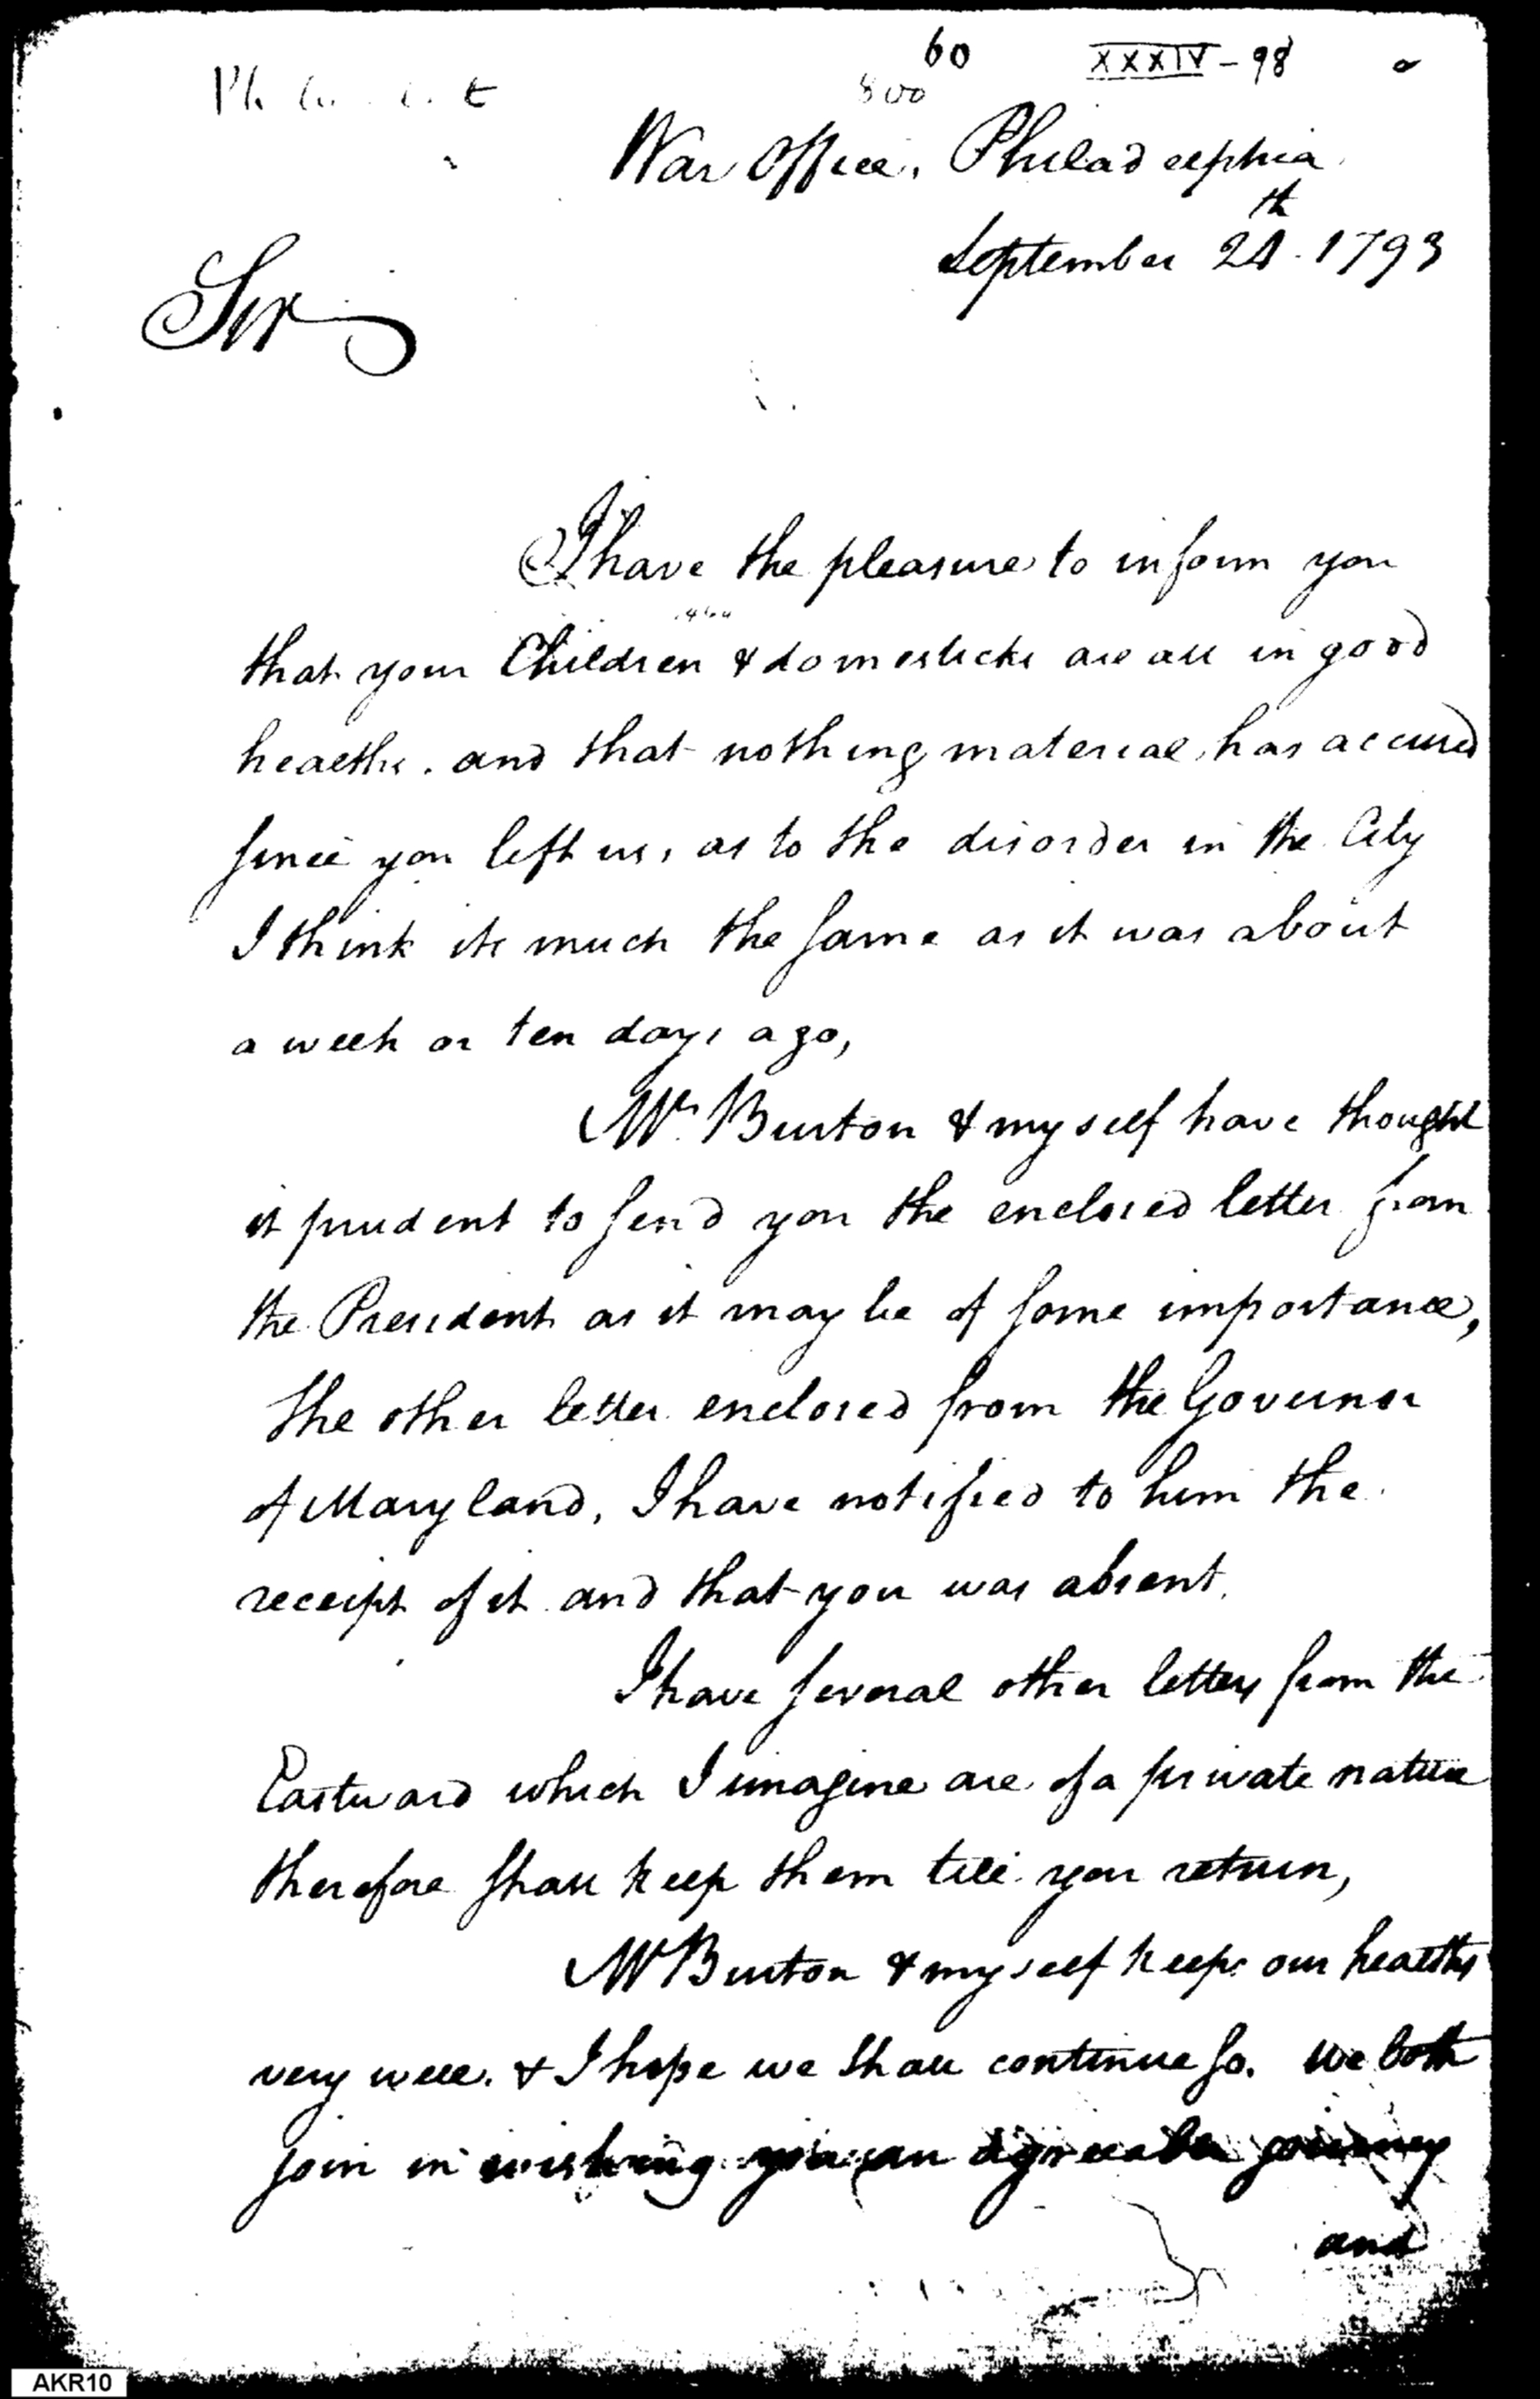 60 XXXIV - 98
800
War Office, Philadelphia
September 24th 1793
Sir
I have the pleasure to inform you
that your Children & domesticks are all in good
health. and that nothing material has accured
since you left us, as to the disorder in the City
I think its much the same as it was about
a week or ten days ago,
Mr. Burton & myself have thought
it prudent to send you the enclosed letter from
the President as it may be of some importance,
the other letter enclosed from the Governor
of Maryland, I have notified to him the
receipt of it and that you was absent.
I have several other letters from the
Eastward which I imagine are of a private nature
therefore shall keep them till your return,
Mr Burton & myself keeps our healths
very well. & I hope we shall continue so. we both
join in wishing you an agreeable journey
and
AKR10